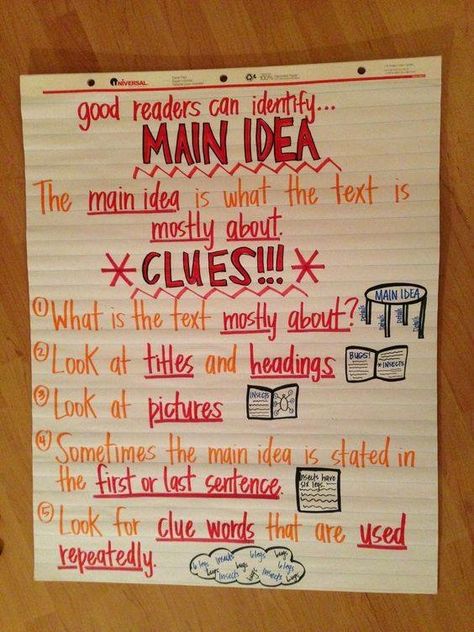 UNIVERSAL
100%
good readers can identify...
MAIN IDEA
The main idea is what the text is
mostly about.
* CLUES!!! *
① What is the text mostly about?
MAIN IDEA
details details details details
② Look at titles and headings
BUGS!
* INSECTS
③ Look at pictures
INSECTS
④ Sometimes the main idea is stated in
the first or last sentence.
Insects have
six legs.
⑤ Look for clue words that are used
repeatedly.
6 legs insects 6 legs bugs
bugs bugs 6 legs
insects bugs insects bugs